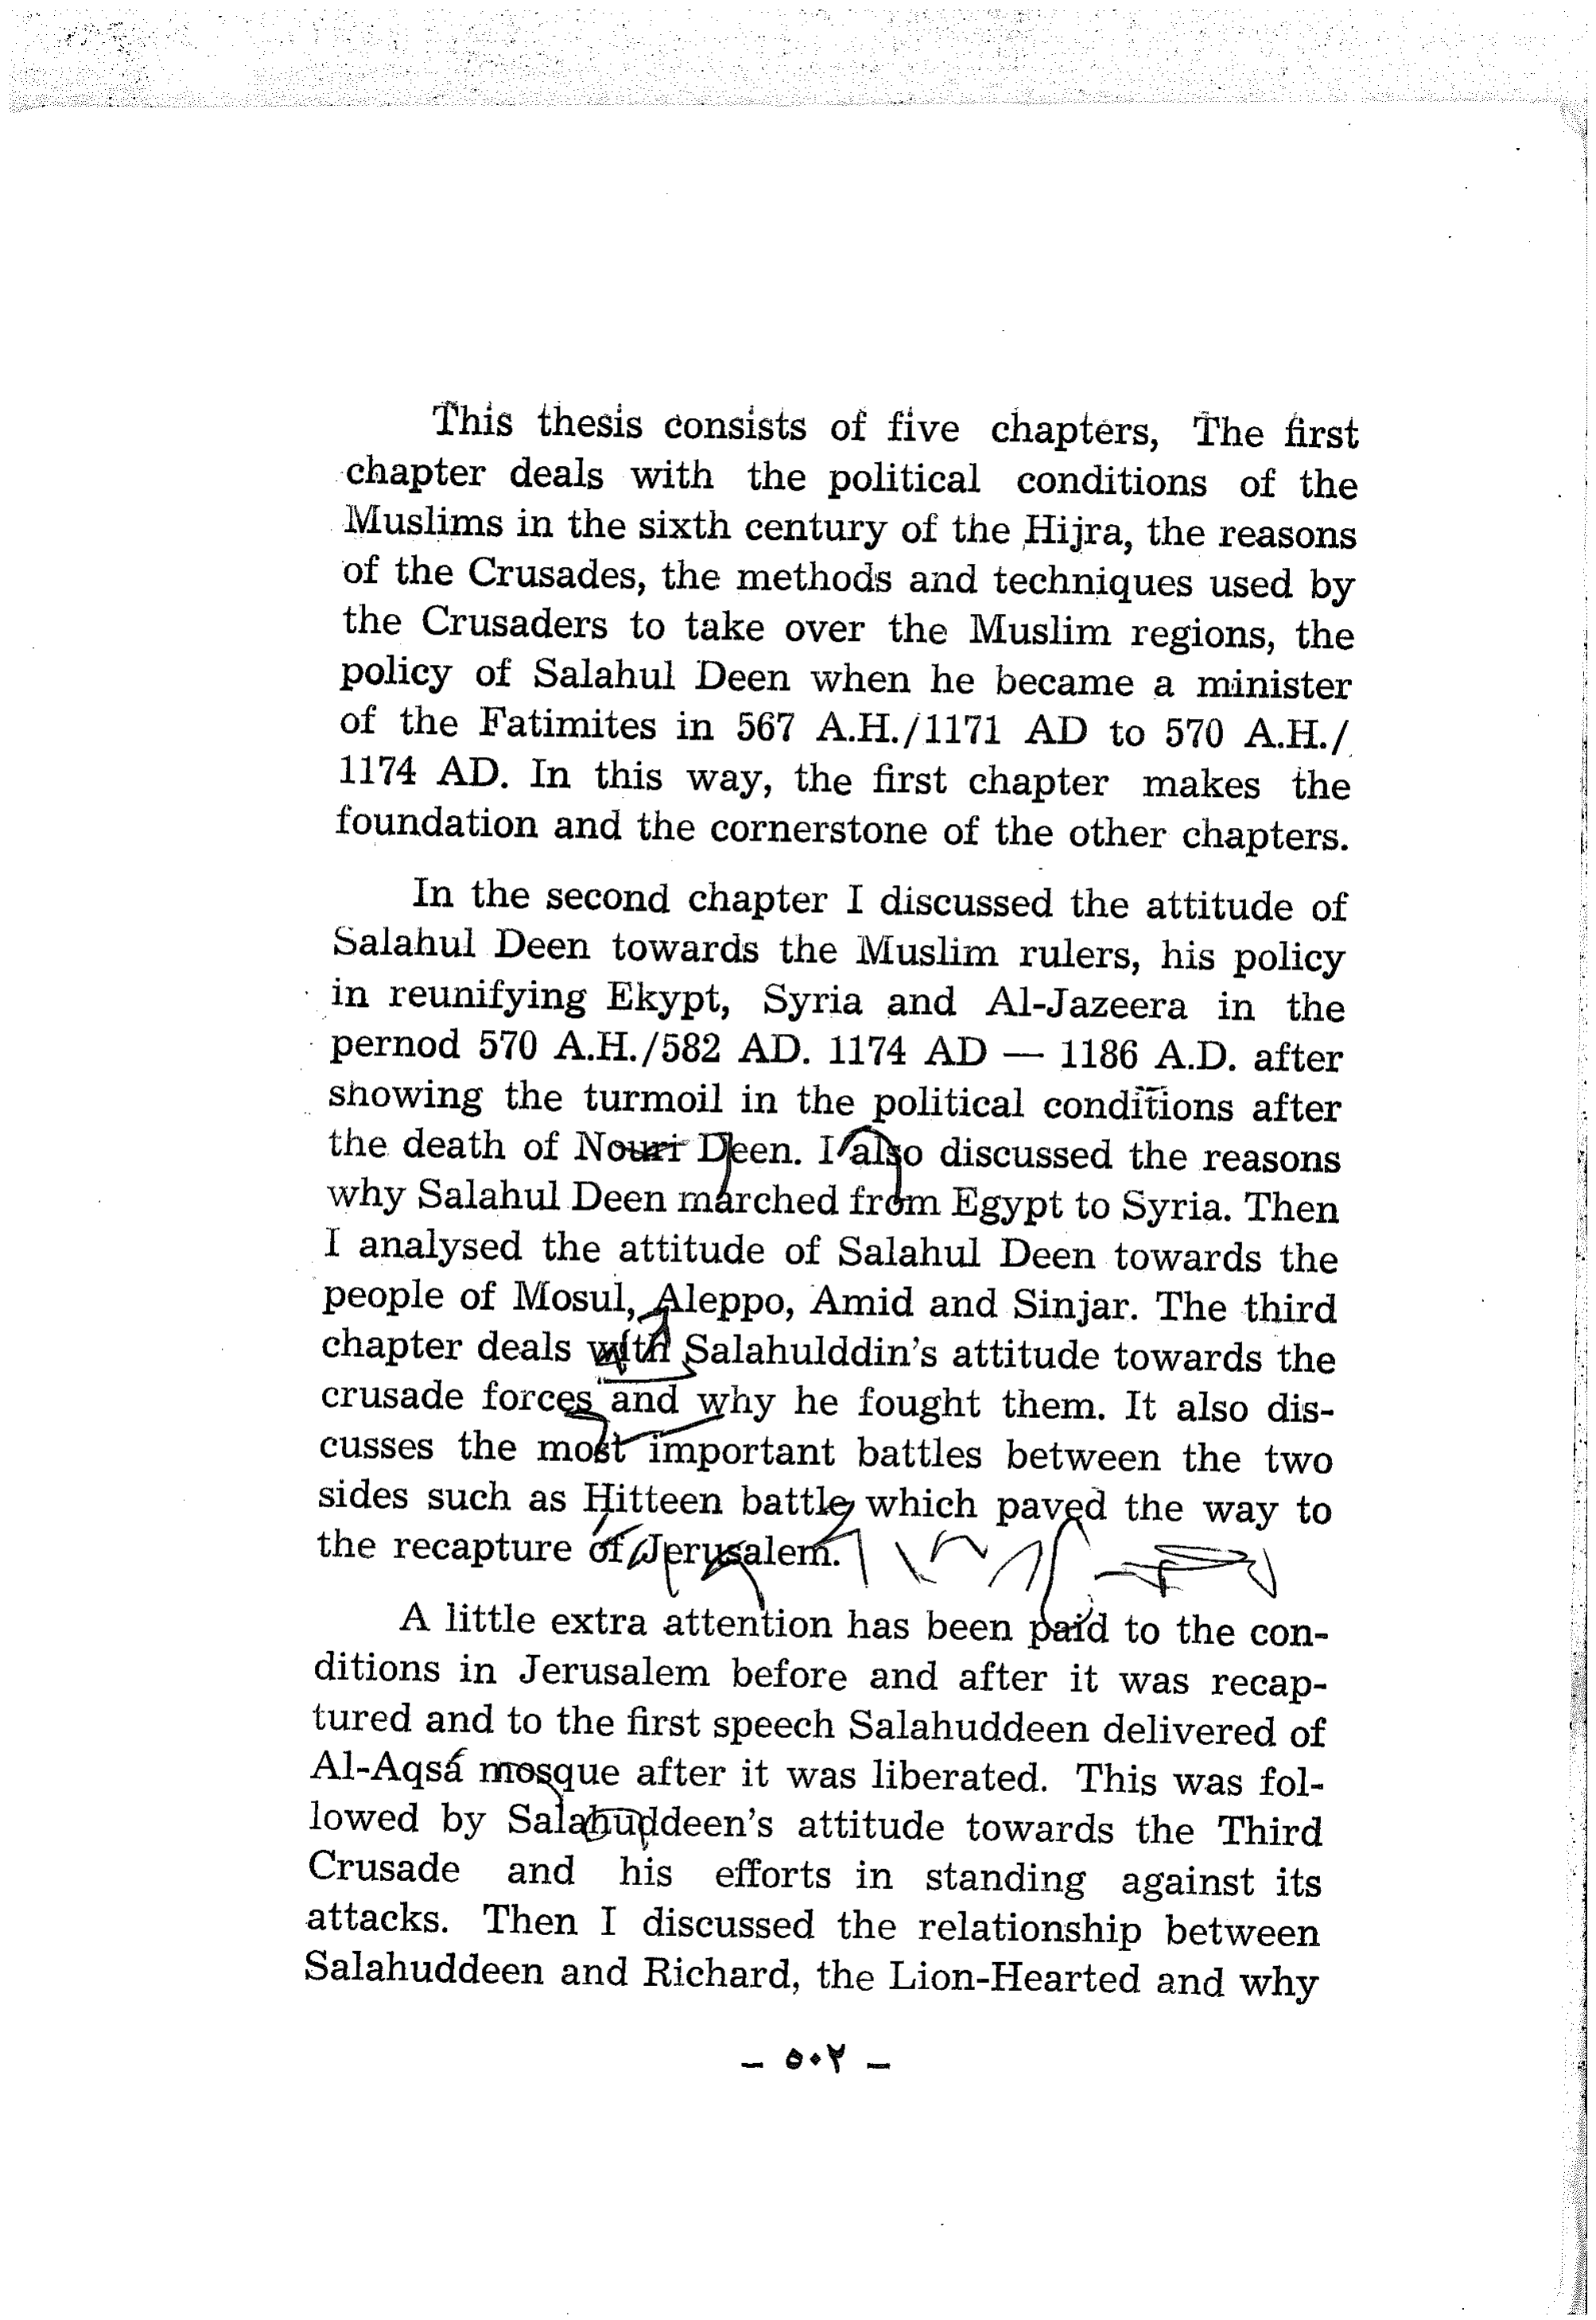 This thesis consists of five chapters, The first
chapter deals with the political conditions of the
Muslims in the sixth century of the Hijra, the reasons
of the Crusades, the methods and techniques used by
the Crusaders to take over the Muslim regions, the
policy of Salahul Deen when he became a minister
of the Fatimites in 567 A.H./1171 AD to 570 A.H./
1174 AD. In this way, the first chapter makes the
foundation and the cornerstone of the other chapters.
In the second chapter I discussed the attitude of
Salahul Deen towards the Muslim rulers, his policy
in reunifying Ekypt, Syria and Al-Jazeera in the
pernod 570 A.H./582 AD. 1174 AD — 1186 A.D. after
showing the turmoil in the political conditions after
the death of Nouri Deen. I also discussed the reasons
why Salahul Deen marched from Egypt to Syria. Then
I analysed the attitude of Salahul Deen towards the
people of Mosul, Aleppo, Amid and Sinjar. The third
chapter deals with Salahulddin's attitude towards the
crusade forces and why he fought them. It also dis-
cusses the most important battles between the two
sides such as Hitteen battle which paved the way to
the recapture of Jerusalem.
A little extra attention has been paid to the con-
ditions in Jerusalem before and after it was recap-
tured and to the first speech Salahuddeen delivered of
Al-Aqsá mosque after it was liberated. This was fol-
lowed by Salahuddeen's attitude towards the Third
Crusade and his efforts in standing against its
attacks. Then I discussed the relationship between
Salahuddeen and Richard, the Lion-Hearted and why
— ٥٠٢ —